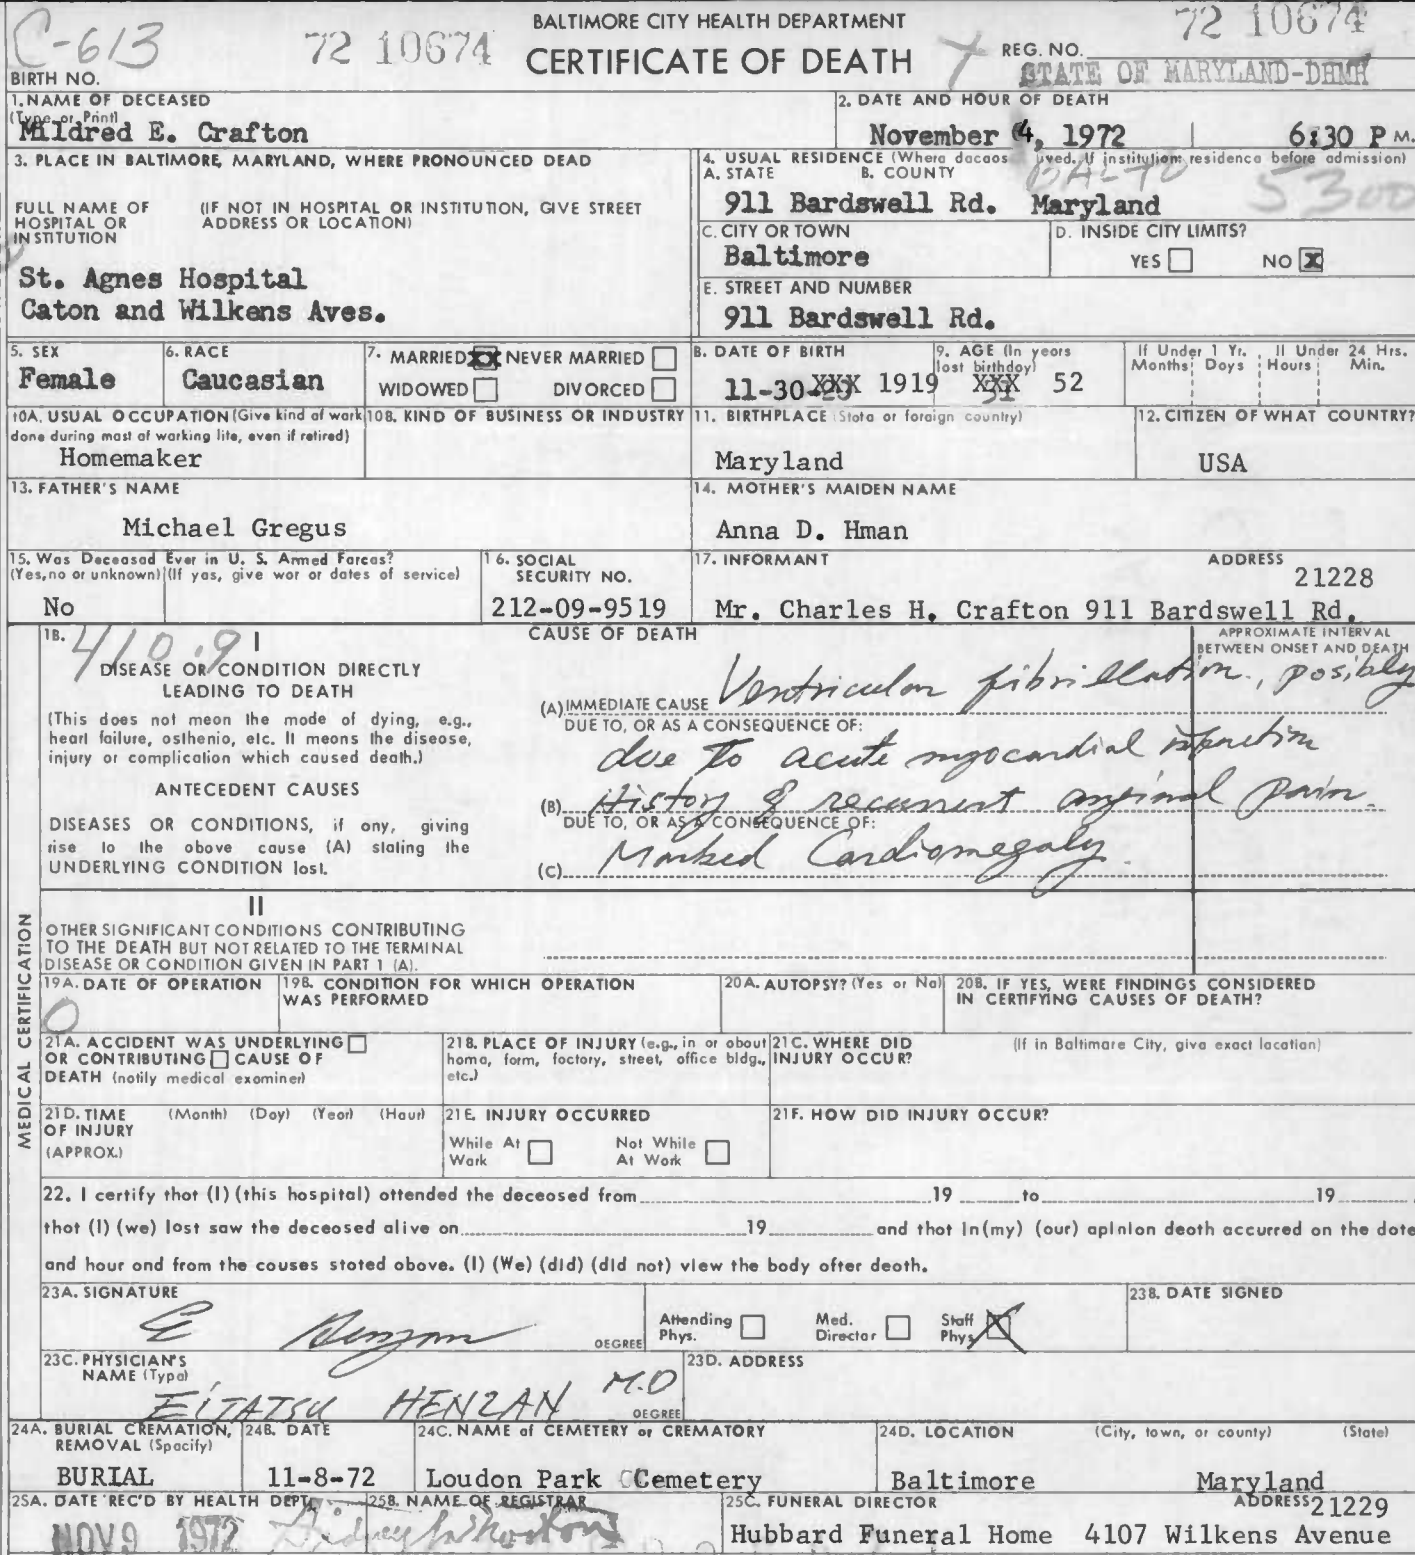 C-613
72 10674
BALTIMORE CITY HEALTH DEPARTMENT
72 10674
CERTIFICATE OF DEATH
REG. NO.
STATE OF MARYLAND-DHMH
BIRTH NO.
1. NAME OF DECEASED
(Type or Print)
Mildred E. Crafton
2. DATE AND HOUR OF DEATH
November 4, 1972 6:30 P M.
3. PLACE IN BALTIMORE, MARYLAND, WHERE PRONOUNCED DEAD
FULL NAME OF HOSPITAL OR INSTITUTION
(IF NOT IN HOSPITAL OR INSTITUTION, GIVE STREET ADDRESS OR LOCATION)
St. Agnes Hospital
Caton and Wilkens Aves.
4. USUAL RESIDENCE (Where deceas lived. If institution: residence before admission)
A. STATE B. COUNTY
BALTO
5300
911 Bardswell Rd. Maryland
C. CITY OR TOWN
Baltimore
D. INSIDE CITY LIMITS?
YES NO X
E. STREET AND NUMBER
911 Bardswell Rd.
5. SEX
Female
6. RACE
Caucasian
7. MARRIED XX NEVER MARRIED
WIDOWED DIVORCED
8. DATE OF BIRTH
11-30-XXX 1919
9. AGE (In years last birthday)
XXX 52
If Under 1 Yr. If Under 24 Hrs.
Months Days Hours Min.
10A. USUAL OCCUPATION (Give kind of work done during most of working life, even if retired)
Homemaker
10B. KIND OF BUSINESS OR INDUSTRY
11. BIRTHPLACE (State or foreign country)
Maryland
12. CITIZEN OF WHAT COUNTRY?
USA
13. FATHER'S NAME
Michael Gregus
14. MOTHER'S MAIDEN NAME
Anna D. Hman
15. Was Deceased Ever in U. S. Armed Forces?
(Yes, no or unknown) (If yes, give war or dates of service)
No
16. SOCIAL SECURITY NO.
212-09-9519
17. INFORMANT ADDRESS
21228
Mr. Charles H. Crafton 911 Bardswell Rd.
18.
410.9
I
DISEASE OR CONDITION DIRECTLY
LEADING TO DEATH
(This does not mean the mode of dying, e.g.,
heart failure, asthenia, etc. It means the disease,
injury or complication which caused death.)
ANTECEDENT CAUSES
DISEASES OR CONDITIONS, if any, giving
rise to the above cause (A) stating the
UNDERLYING CONDITION last.
CAUSE OF DEATH
APPROXIMATE INTERVAL
BETWEEN ONSET AND DEATH
(A) IMMEDIATE CAUSE Ventricular fibrillation, posibly
DUE TO, OR AS A CONSEQUENCE OF:
due to acute myocardial infarction
(B) History of recurrent anginal pain
DUE TO, OR AS A CONSEQUENCE OF:
(C) Marked Cardiomegaly.
II
OTHER SIGNIFICANT CONDITIONS CONTRIBUTING
TO THE DEATH BUT NOT RELATED TO THE TERMINAL
DISEASE OR CONDITION GIVEN IN PART 1 (A).
MEDICAL CERTIFICATION
19A. DATE OF OPERATION
0
19B. CONDITION FOR WHICH OPERATION WAS PERFORMED
20A. AUTOPSY? (Yes or No)
20B. IF YES, WERE FINDINGS CONSIDERED IN CERTIFYING CAUSES OF DEATH?
21A. ACCIDENT WAS UNDERLYING
OR CONTRIBUTING CAUSE OF
DEATH (notify medical examiner)
21B. PLACE OF INJURY (e.g., in or about home, farm, factory, street, office bldg., etc.)
21C. WHERE DID INJURY OCCUR?
(If in Baltimore City, give exact location)
21D. TIME OF INJURY (APPROX.)
(Month) (Day) (Year) (Hour)
21E. INJURY OCCURRED
While At Work Not While At Work
21F. HOW DID INJURY OCCUR?
22. I certify that (I) (this hospital) attended the deceased from 19 to 19
that (I) (we) last saw the deceased alive on 19 and that in (my) (our) opinion death occurred on the date
and hour and from the causes stated above. (I) (We) (did) (did not) view the body after death.
23A. SIGNATURE
E Henzan
DEGREE
Attending Phys. Med. Director Staff Phys. X
23B. DATE SIGNED
23C. PHYSICIAN'S NAME (Type)
EITATSU HENZAN M.D
DEGREE
23D. ADDRESS
24A. BURIAL CREMATION, REMOVAL (Specify)
BURIAL
24B. DATE
11-8-72
24C. NAME of CEMETERY or CREMATORY
Loudon Park Cemetery
24D. LOCATION (City, town, or county) (State)
Baltimore Maryland
25A. DATE REC'D BY HEALTH DEPT.
NOV 9 1972
25B. NAME OF REGISTRAR
25C. FUNERAL DIRECTOR ADDRESS 21229
Hubbard Funeral Home 4107 Wilkens Avenue